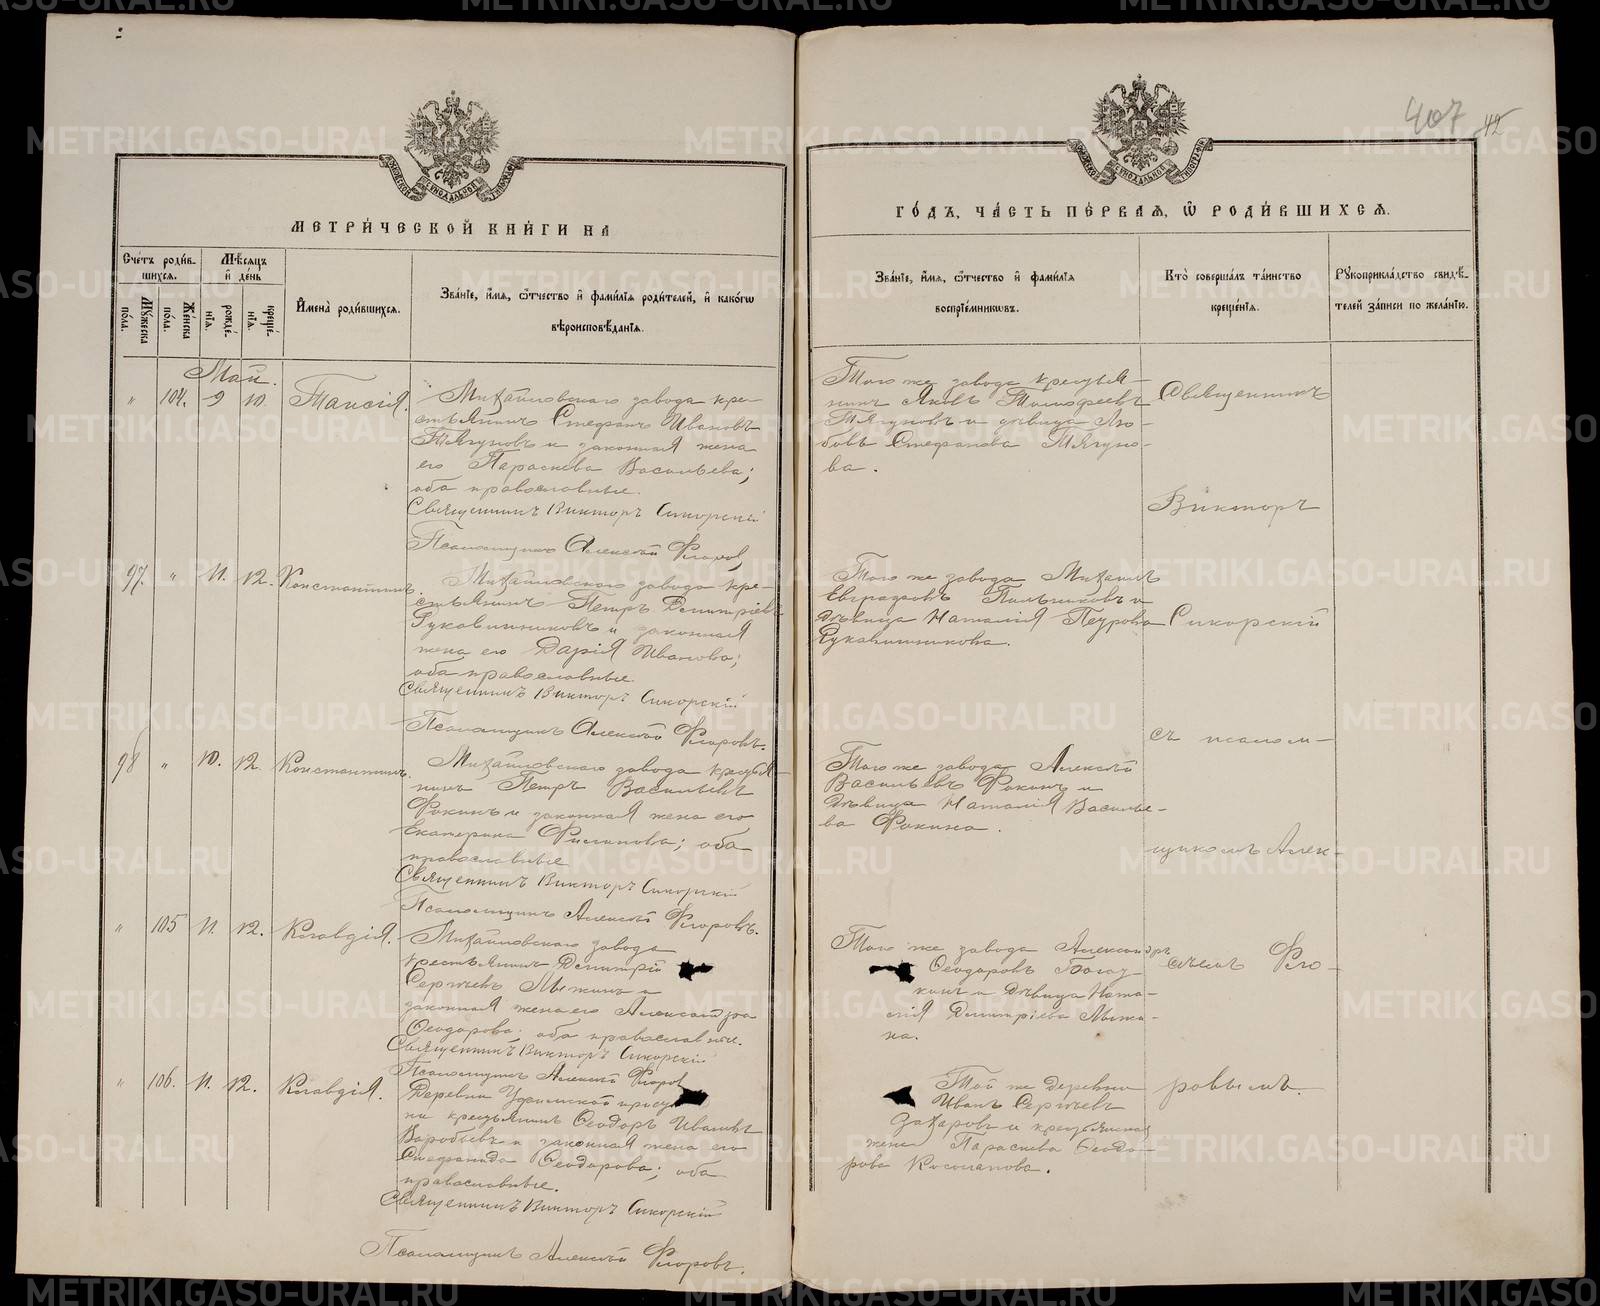 407
42
МЕТРИ́ЧЕСКОЙ КНИ́ГИ НА
ГО́ДЪ, ЧА́СТЬ ПЕ́РВАЯ, Ѿ РОДИ́ВШИХСЯ.
Сче́тъ роди́в-
шихся.
Мѣ́сяцъ
и҆ де́нь
Мꙋ́жеска
по́ла.
Же́нска
по́ла.
рожде́-
нїя.
креще́-
нїя.
И҆мена̀ роди́вшихся.
Зва́нїе, и҆́мя, ѻ҆́тчество и҆ фами́лїя роди́телей, и҆ како́гѡ
вѣроисповѣ́данїя.
Зва́нїе, и҆́мя, ѻ҆́тчество и҆ фами́лїя
воспрїе́мниковъ.
Кто̀ соверша́лъ та́инство
креще́нїя.
Рꙋкоприкла́дство свидѣ́-
телей за́писи по жела́нїю.
Май.
" 104. 9 10. Таисія.
Михайловскаго завода кре-
стьянинъ Стефанъ Ивановъ
Тягуновъ и законная жена
его Параскева Васильева;
оба православные.
Священникъ Викторъ Сикорскій
Псаломщикъ Алексѣй Флоровъ
Того же завода крестья-
нинъ Яковъ Тимофеевъ
Тягуновъ и дѣвица Лю-
бовь Стефанова Тягуно-
ва.
97. " 11. 12. Константинъ.
Михайловскаго завода кре-
стьянинъ Петръ Димитріевъ
Рукавишниковъ и законная
жена его Дарія Иванова;
оба православные.
Священникъ Викторъ Сикорскій
Псаломщикъ Алексѣй Флоровъ.
Того же завода Михаилъ
Евграфовъ Пильниковъ и
дѣвица Наталія Петрова
Рукавишникова.
98 " 10. 12. Константинъ.
Михайловскаго завода крестья-
нинъ Петръ Васильевъ
Фокинъ и законная жена его
Екатерина Филипова; оба
православные
Священникъ Викторъ Сикорскій
Псаломщикъ Алексѣй Флоровъ.
Того же завода Алексѣй
Васильевъ Фокинъ и
дѣвица Наталія Василье-
ва Фокина.
" 105 11. 12. Клавдія.
Михайловскаго завода
крестьянинъ Димитрій
Сергѣевъ Мыжинъ и
законная жена его Александра
Ѳеодорова; оба православные.
Священникъ Викторъ Сикорскій
Псаломщикъ Алексѣй Флоров
Того же завода Александръ
Ѳеодоровъ
и дѣвица Ната-
лія Димитріева Мыжи-
на.
" 106. 11. 12. Клавдія.
Деревни Уфимской
крестьянинъ Ѳеодоръ Ивановъ
Воробьевъ и законная жена его
Стефанида Ѳеодорова; оба
православные.
Священникъ Викторъ Сикорскій
Псаломщикъ Алексѣй Флоровъ.
Той же деревни
Иванъ Сергѣевъ
Захаровъ и крестьянская
жена Параскева Ѳеодо-
рова Косолапова.
Священникъ
Викторъ
Сикорскій
съ псалом-
щикомъ Алек-
сѣемъ Фло-
ровымъ.
METRIKI.GASO-URAL.RU